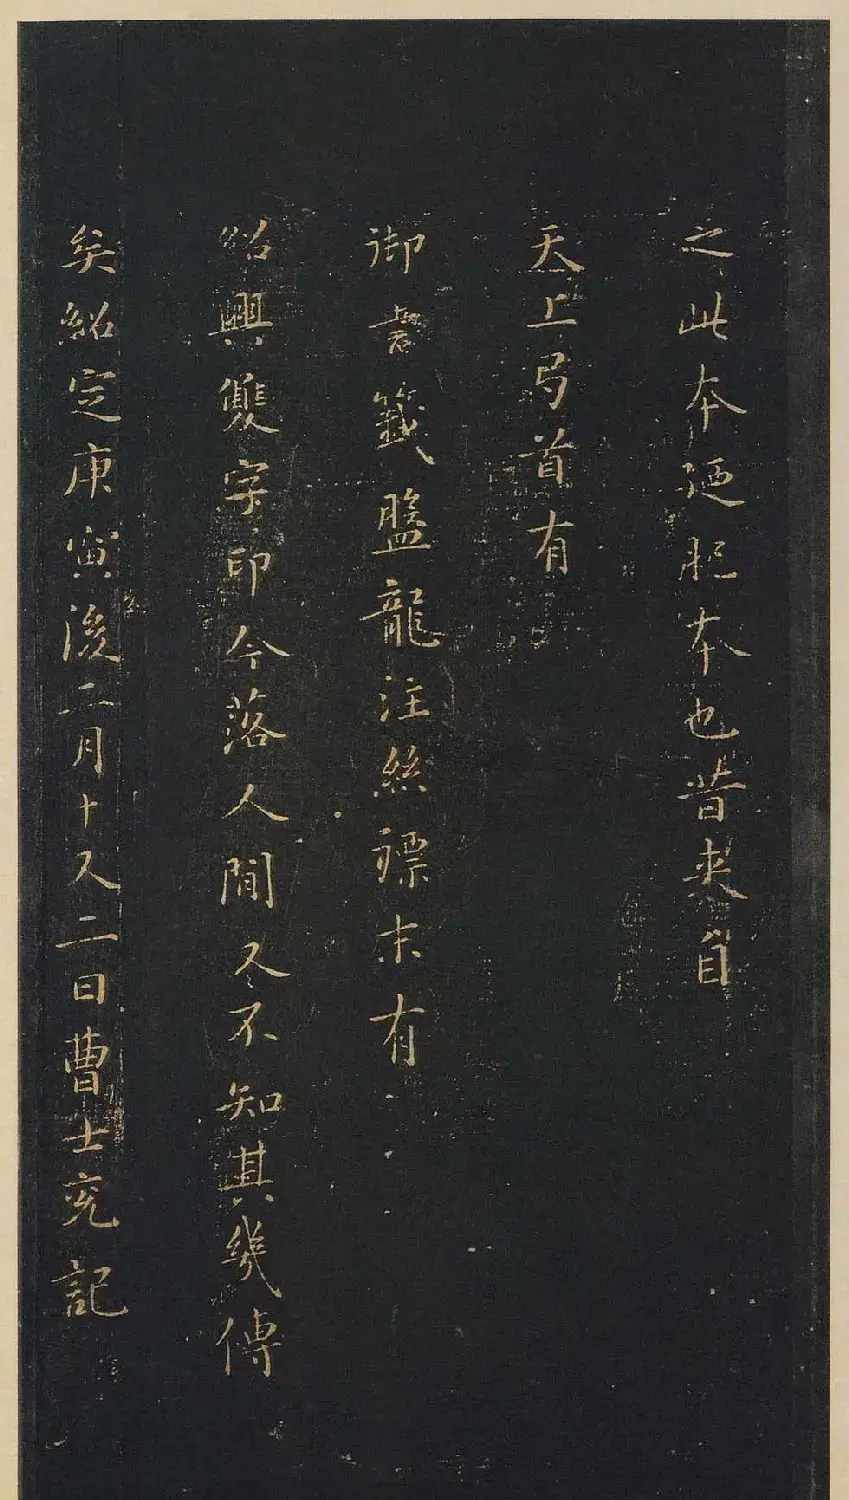 之此本廼肥本也昔來自
天上弓首有
御書籤盤龍注絲褾末有
紹興雙字印今落人間又不知其幾傳
矣紹定庚寅後二月十又二日曹士冕記